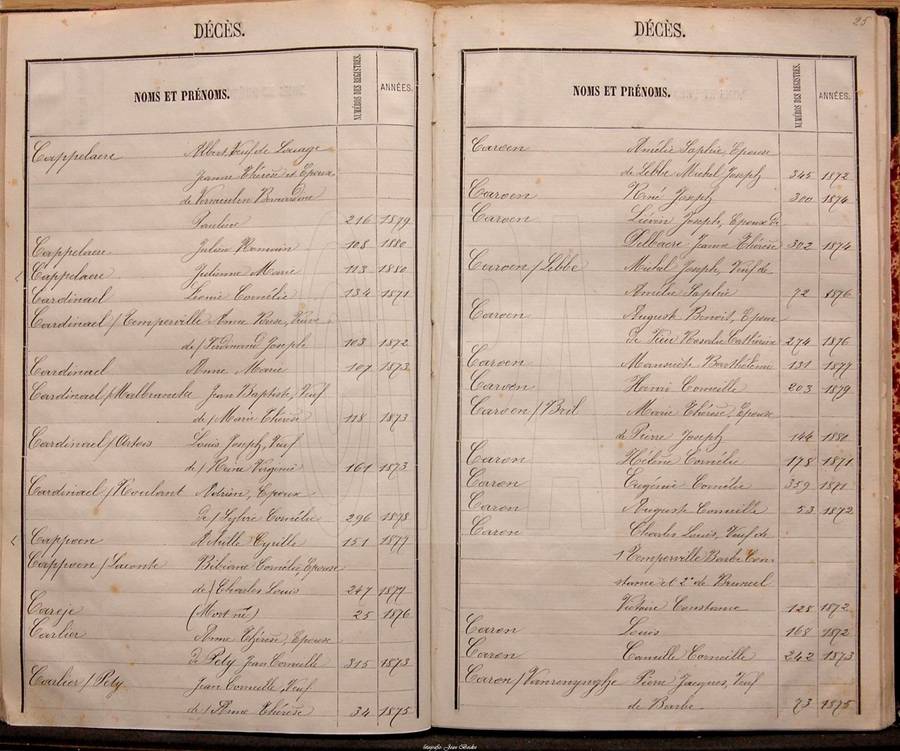 DÉCÈS.
NOMS ET PRÉNOMS. NUMÉROS DES REGISTRES. ANNÉES.
Cappelaere Albert, Veuf de Sauvage
Jeanne Thérèse et Epoux
de Vermeulen Bernardine
Pauline 216 1879
Cappelaere Julien Romain 108 1880
Cappelaere Julienne Marie 113 1880
Cardinael Léonie Cornélie 134 1871
Cardinael / Temperville Anne Rose, Veuve
de / Ferdinand Joseph 103 1872
Cardinael Anne Marie 107 1873
Cardinael / Malbrancke Jean Baptiste, Veuf
de / Marie Thérèse 118 1873
Cardinael / Artois Louis Joseph, Veuf
de / Reine Virginie 161 1873
Cardinael / Roulant Adrien, Epoux
de / Sylvie Cornélie 296 1878
Cappoen Achille Cyrille 151 1877
Cappoen / Laconte Bibiane Cornélie, Epouse
de / Charles Louis 247 1877
Careje (Mort né) 25 1876
Carlier Anne Thérèse, Epouse
de Pety Jean Corneille 315 1873
Carlier / Pety Jean Corneille, Veuf
de / Anne Thérèse 34 1875
25
DÉCÈS.
NOMS ET PRÉNOMS. NUMÉROS DES REGISTRES. ANNÉES.
Caroen Amélie Sophie, Epouse
de Lebbe Michel Joseph 345 1872
Caroen René Joseph 300 1874
Caroen Liévin Joseph, Epoux de
Delbaere Jeanne Thérèse 302 1874
Caroen / Lebbe Michel Joseph, Veuf de
Amélie Sophie 72 1876
Caroen Auguste Benoit, Epoux
de Rosalie Cathérine 274 1876
Caroen Mansuite Barthélemi 131 1877
Caroen Henri Corneille 203 1879
Caroen / Bril Marie Thérèse, Epouse
de Pierre Joseph 144 1880
Caron Hélène Cornélie 178 1871
Caron Eugénie Cornélie 359 1871
Caron Auguste Corneille 53 1872
Caron Charles Louis, Veuf de
1 Temperville Barbe Con-
stance et 2° de Bruneel
Victoire Constance 128 1872
Caron Louis 168 1872
Caron Camille Corneille 242 1873
Caron / Vanrenynghe Pierre Jacques, Veuf
de Barbe 73 1875
fotografie Jean Becke